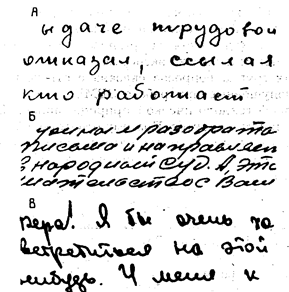 А
ыдаче трудовой
отказал, ссылая
кто работает
Б
разврата
письма и направляем
в народный суд. А эт
с Ваш
В
Вера! Я бы очень хо
встретиться на этой
нибудь. У меня к